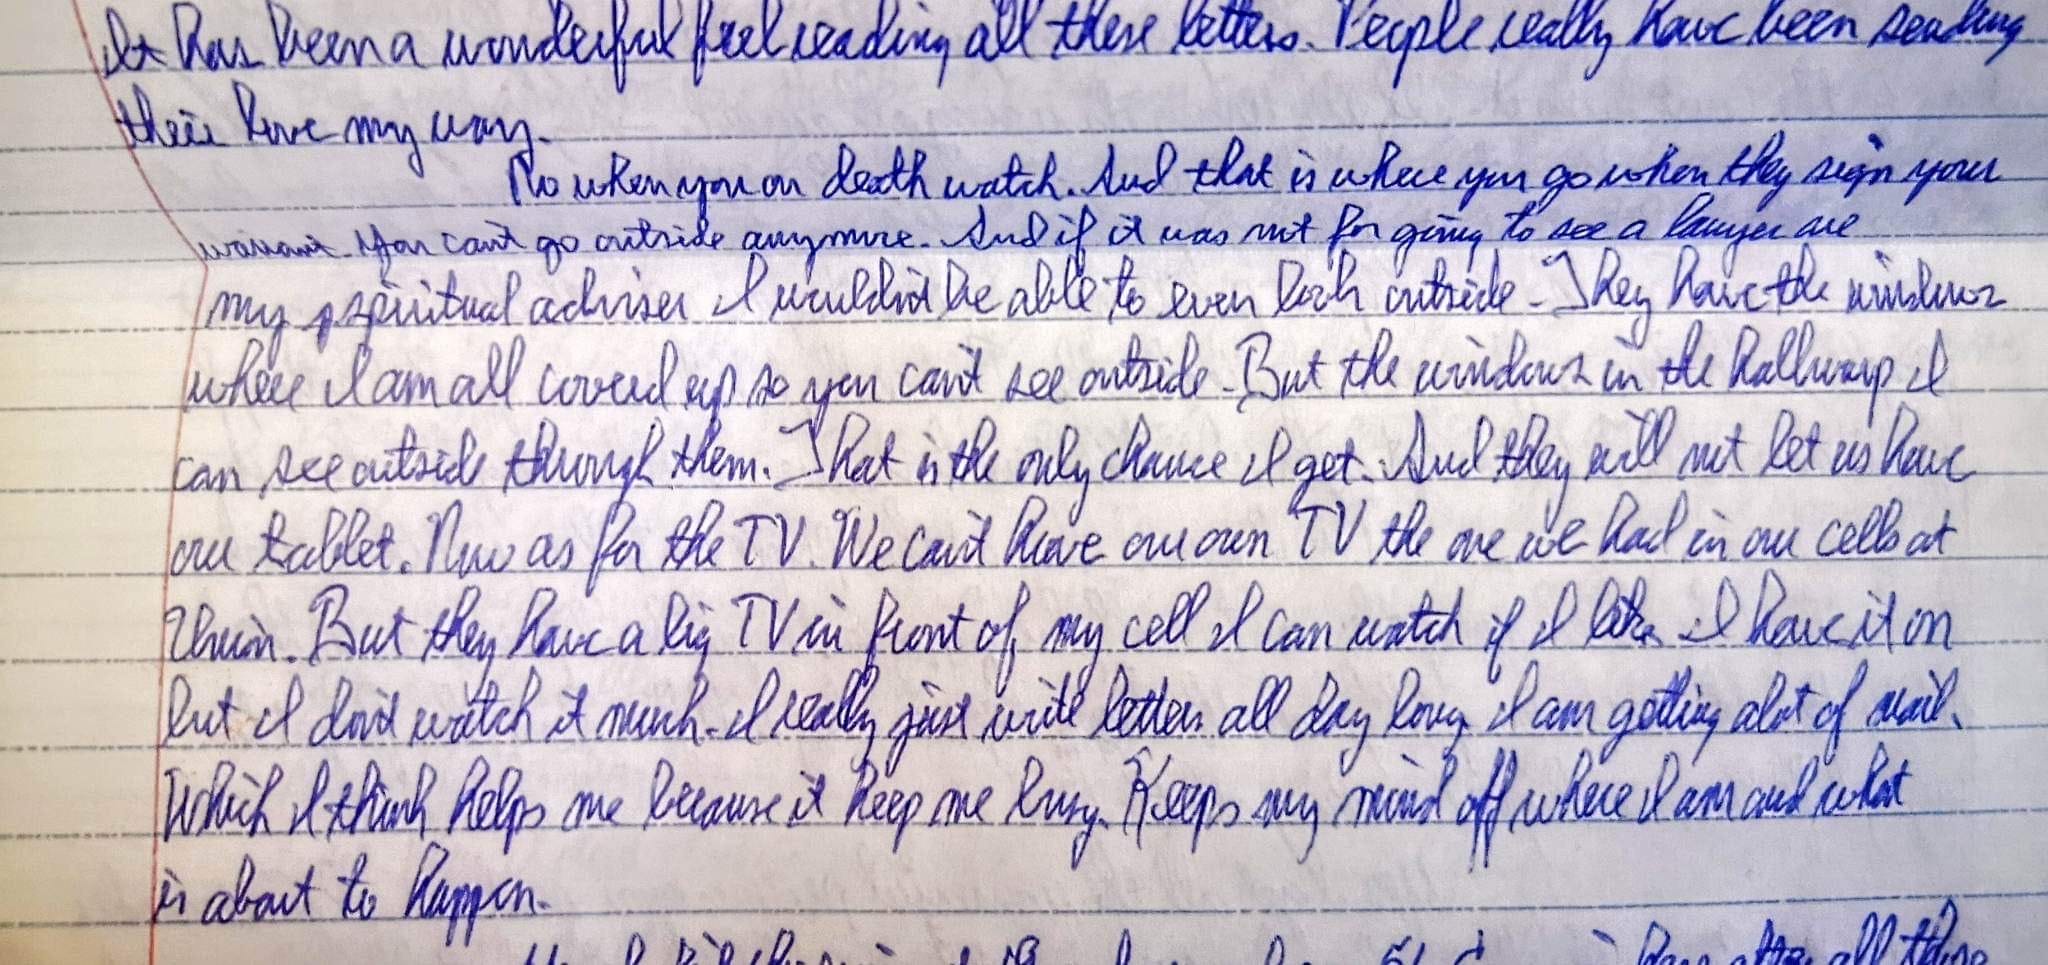 It has been a wonderful feel reading all these letters. People really have been sending
their love my way.
No when you on death watch. And that is where you go when they sign your
warrant. You can't go outside anymore. And if it was not for going to see a lawyer are
my spiritual adviser I wouldn't be able to even look outside. They have the windows
where I am all coverd up so you can't see outside. But the windows in the hallway I
can see outside through them. That is the only chance I get. And they will not let us have
our tablet. Now as for the TV. We can't have our own TV the one we had in our cells at
But they have a big TV in front of my cell I can watch if I like. I have it on
but I don't watch it much. I really just write letters all day long. I am getting alot of mail.
Which I think helps me because it keep me busy. Keeps my mind off where I am and what
is about to happen.
after all these